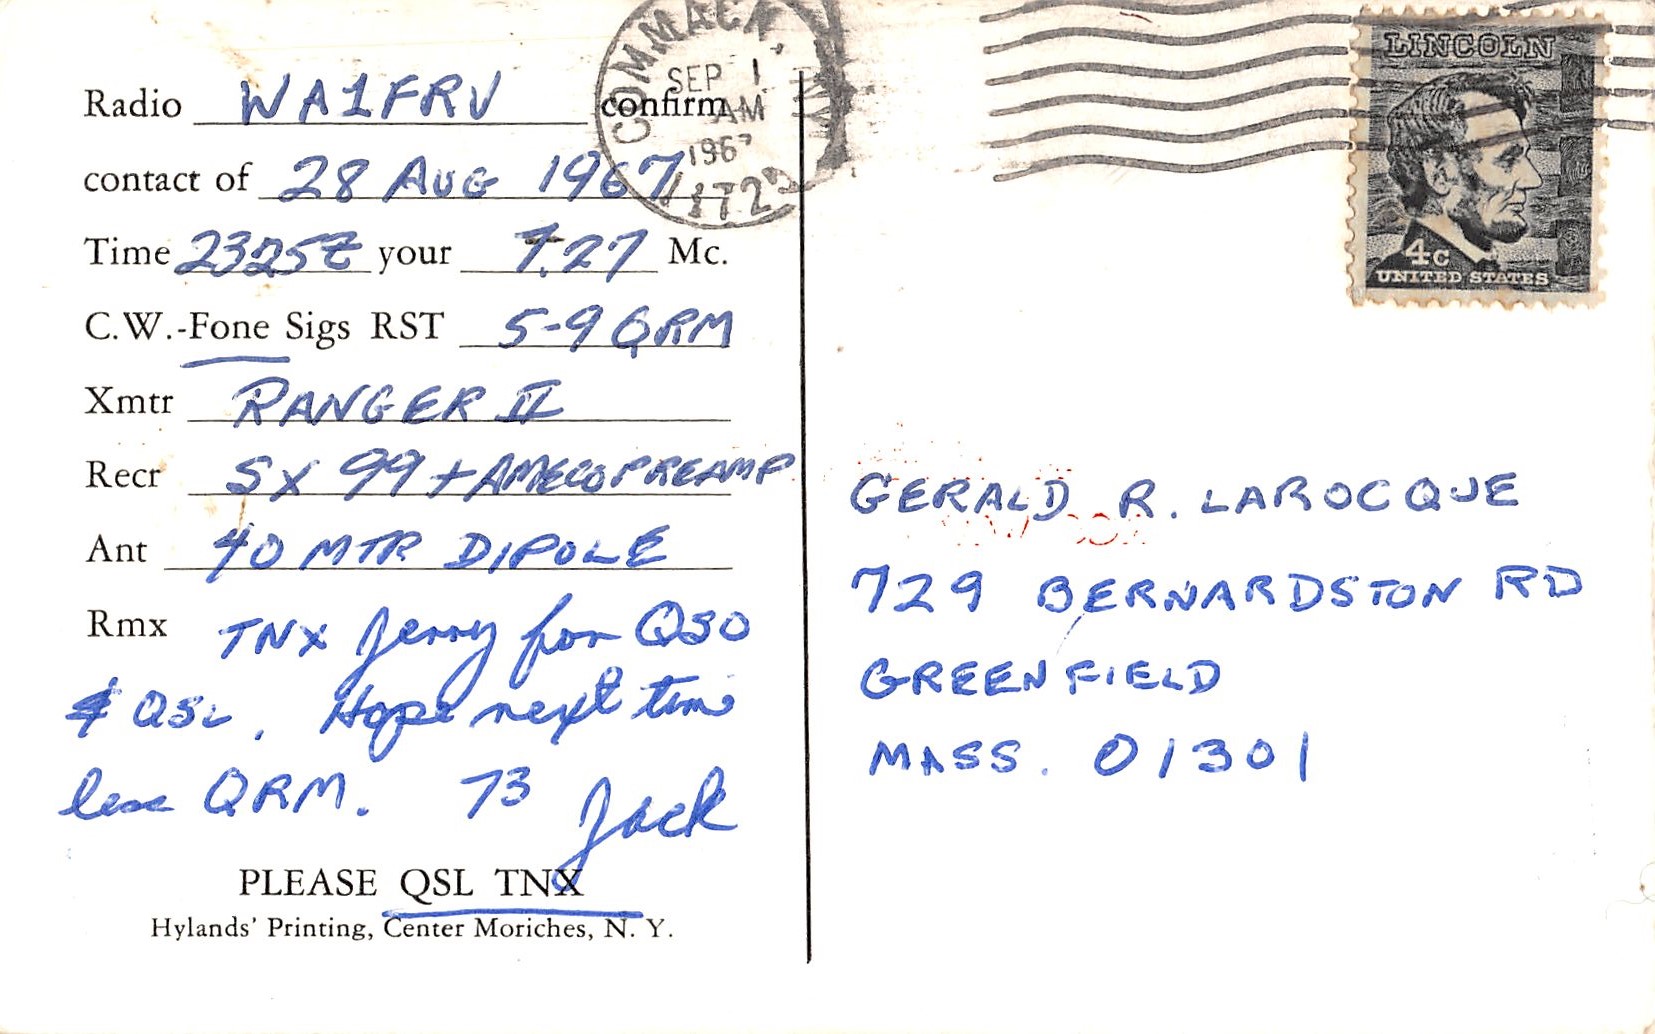 Radio WA1FRV confirm
contact of 28 AUG 1967
Time 2325Z your 7.27 Mc.
C.W.-Fone Sigs RST 5-9 QRM
Xmtr RANGER II
Recr SX 99 + AMECO PREAMP
Ant 40 MTR DIPOLE
Rmx TNX Jerry for QSO
& QSL. Hope next time
less QRM. 73 Jack
PLEASE QSL TNX
Hylands' Printing, Center Moriches, N. Y.
COMMACK, NY
SEP 1
AM
1967
LINCOLN
4c
UNITED STATES
GERALD R. LAROCQUE
729 BERNARDSTON RD
GREENFIELD
MASS. 01301